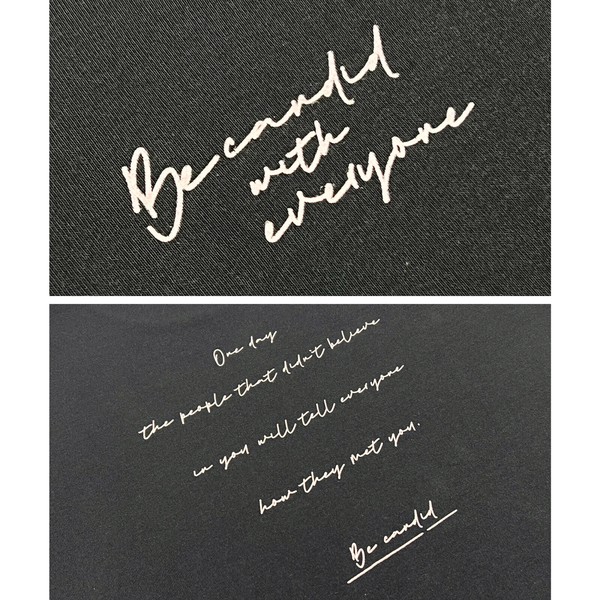 Be candid
with
everyone
One day
the people that didn't believe
in you will tell everyone
how they met you.
Be candid